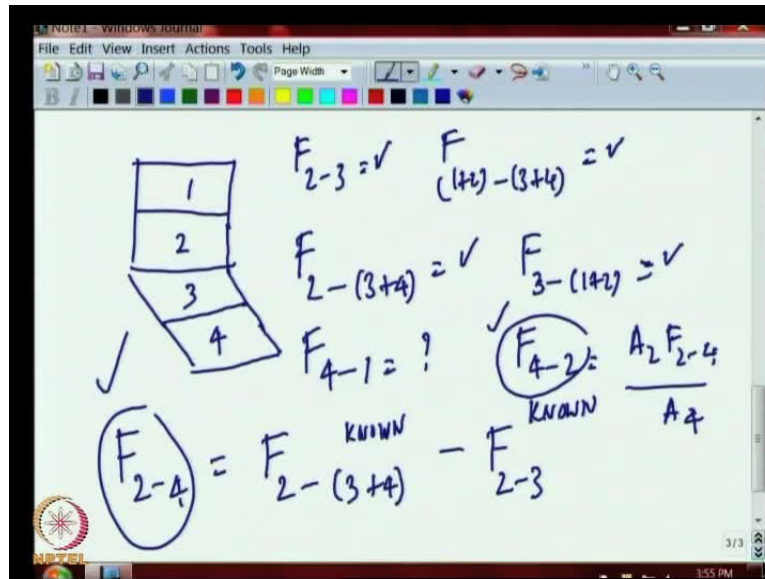 Note1 - Windows Journal
File Edit View Insert Actions Tools Help
Page Width
B I
1
2
3
4
F2-3 = ✓ F(1+2)-(3+4) = ✓
F2-(3+4) = ✓ F3-(1+2) = ✓
✓ F4-1 = ? ✓ F4-2 = A2 F2-4 / A4
KNOWN KNOWN
F2-4 = F2-(3+4) - F2-3
NPTEL
3/3
3:55 PM